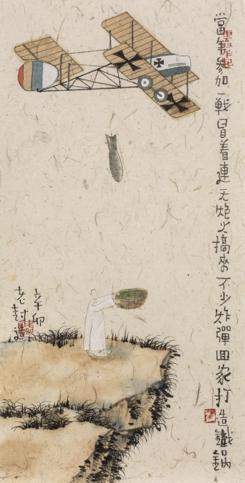 當年參加一戰冒着連天炮火搞來不少炸彈回家打造鐵鍋
辛卯
老封